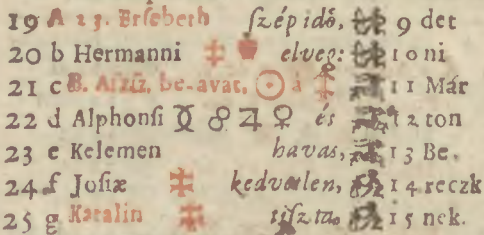 19 A 13. Erſebeth ſzép idő, 9 det
20 b Hermanni elveg: 10 ni
21 c B. Aſzſz, be-avat, ☉ à 11 Már
22 d Alphonſi ☿ ☍ ♃ ♀ és 12 ton
23 e Kelemen havas, 13 Be,
24 f Joſiæ kedvetlen, 14 reczk
25 g Katalin tiſzta. 15 nek.